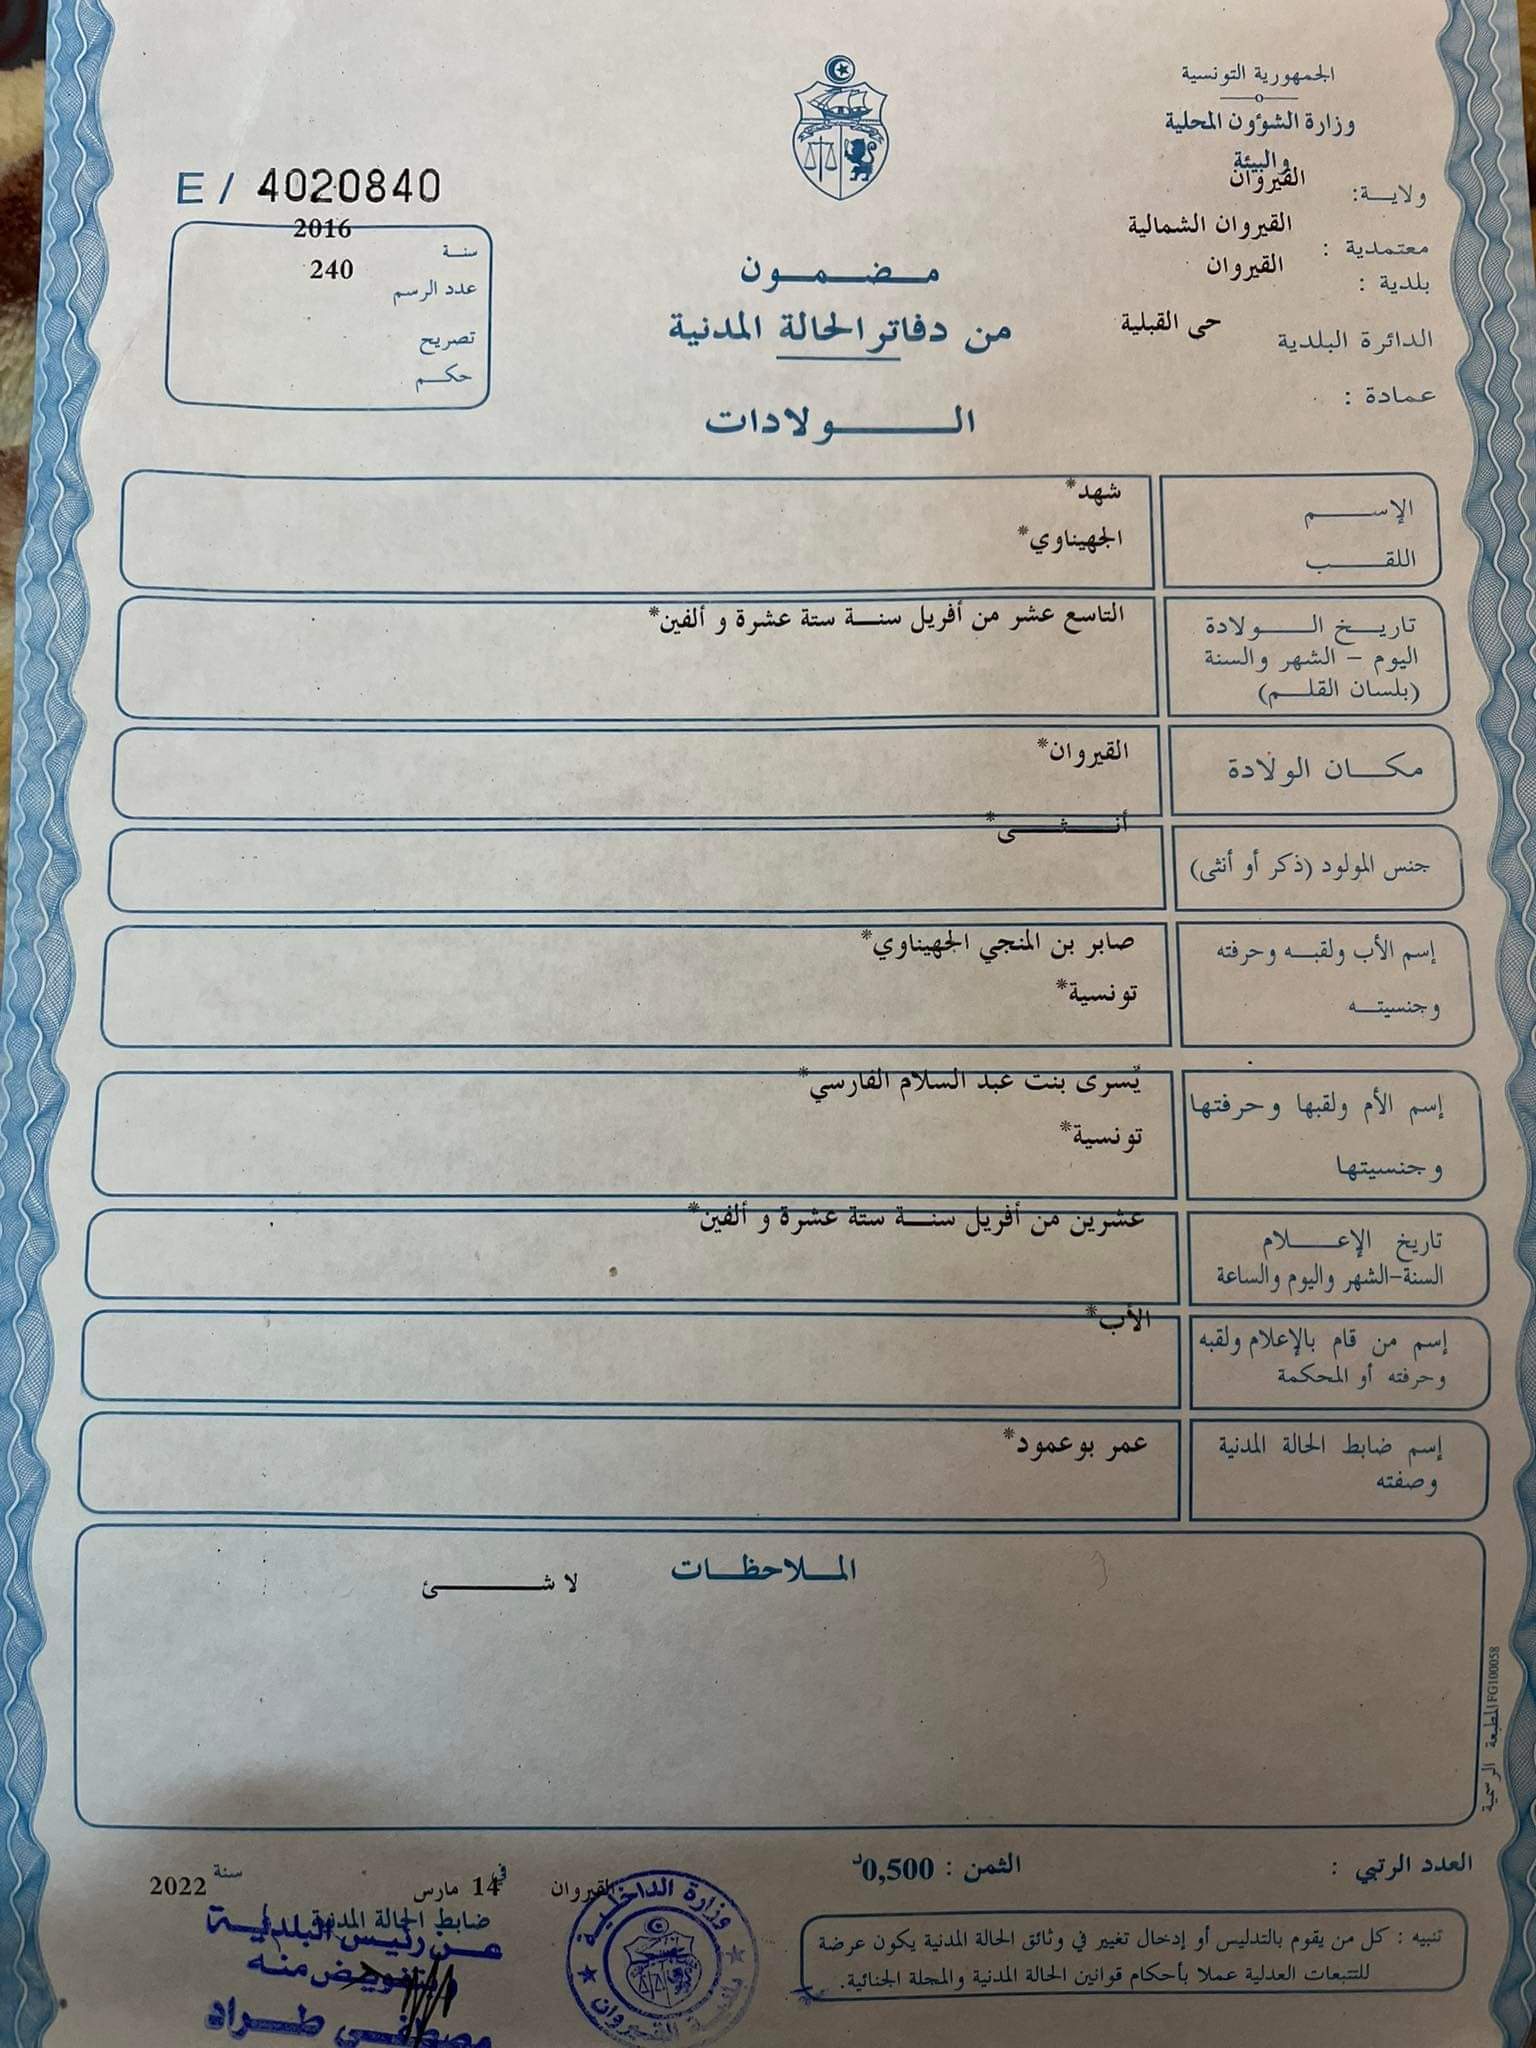 الجمهورية التونسية
وزارة الشؤون المحلية
والبيئة
ولاية: القيروان
معتمدية : القيروان الشمالية
بلدية : القيروان
الدائرة البلدية حى القبلية
عمادة :
E / 4020840
سنة 2016
عدد الرسم 240
تصريح
حكم
مضمون
من دفاتر الحالة المدنية
الولادات
الإسم شهد*
اللقب الجهيناوي*
تاريخ الولادة التاسع عشر من أفريل سنة ستة عشرة و ألفين*
اليوم - الشهر والسنة
(بلسان القلم)
مكان الولادة القيروان*
جنس المولود (ذكر أو أنثى) أنثى*
إسم الأب ولقبه وحرفته صابر بن المنجي الجهيناوي*
وجنسيته تونسية*
إسم الأم ولقبها وحرفتها يُسرى بنت عبد السلام الفارسي*
وجنسيتها تونسية*
تاريخ الإعلام عشرين من أفريل سنة ستة عشرة و ألفين*
السنة-الشهر واليوم والساعة
إسم من قام بالإعلام ولقبه الأب*
وحرفته أو المحكمة
إسم ضابط الحالة المدنية عمر بوعمود*
وصفته
الملاحظات
لا شئ
المطبعة الرسمية FG100058
العدد الرتبي :
الثمن : 0,500د
تنبيه : كل من يقوم بالتدليس أو إدخال تغيير في وثائق الحالة المدنية يكون عرضة
للتتبعات العدلية عملا بأحكام قوانين الحالة المدنية والمجلة الجنائية.
القيروان في 14 مارس سنة 2022
ضابط الحالة المدنية
عن رئيس البلدية
وبتفويض منه
مصطفى طراد
وزارة الداخلية
بلدية القيروان